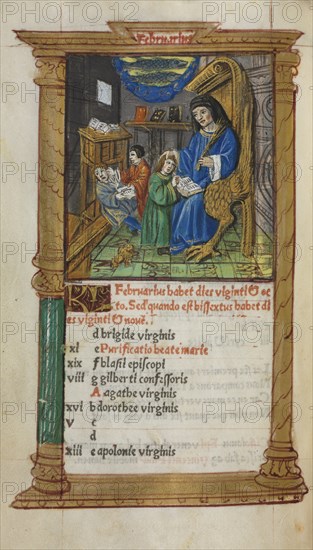 Februarius
KL Februarius habet dies viginti Oc
to. Sed quando est bissextus habet di
es viginti Novē.
d brigide virginis
xi e Purificatio beate marie
xix f blasii episcopi
viii g gilberti confessoris
A agathe virginis
xvi b dorothee virginis
v c
d
xiii e apolonie virginis